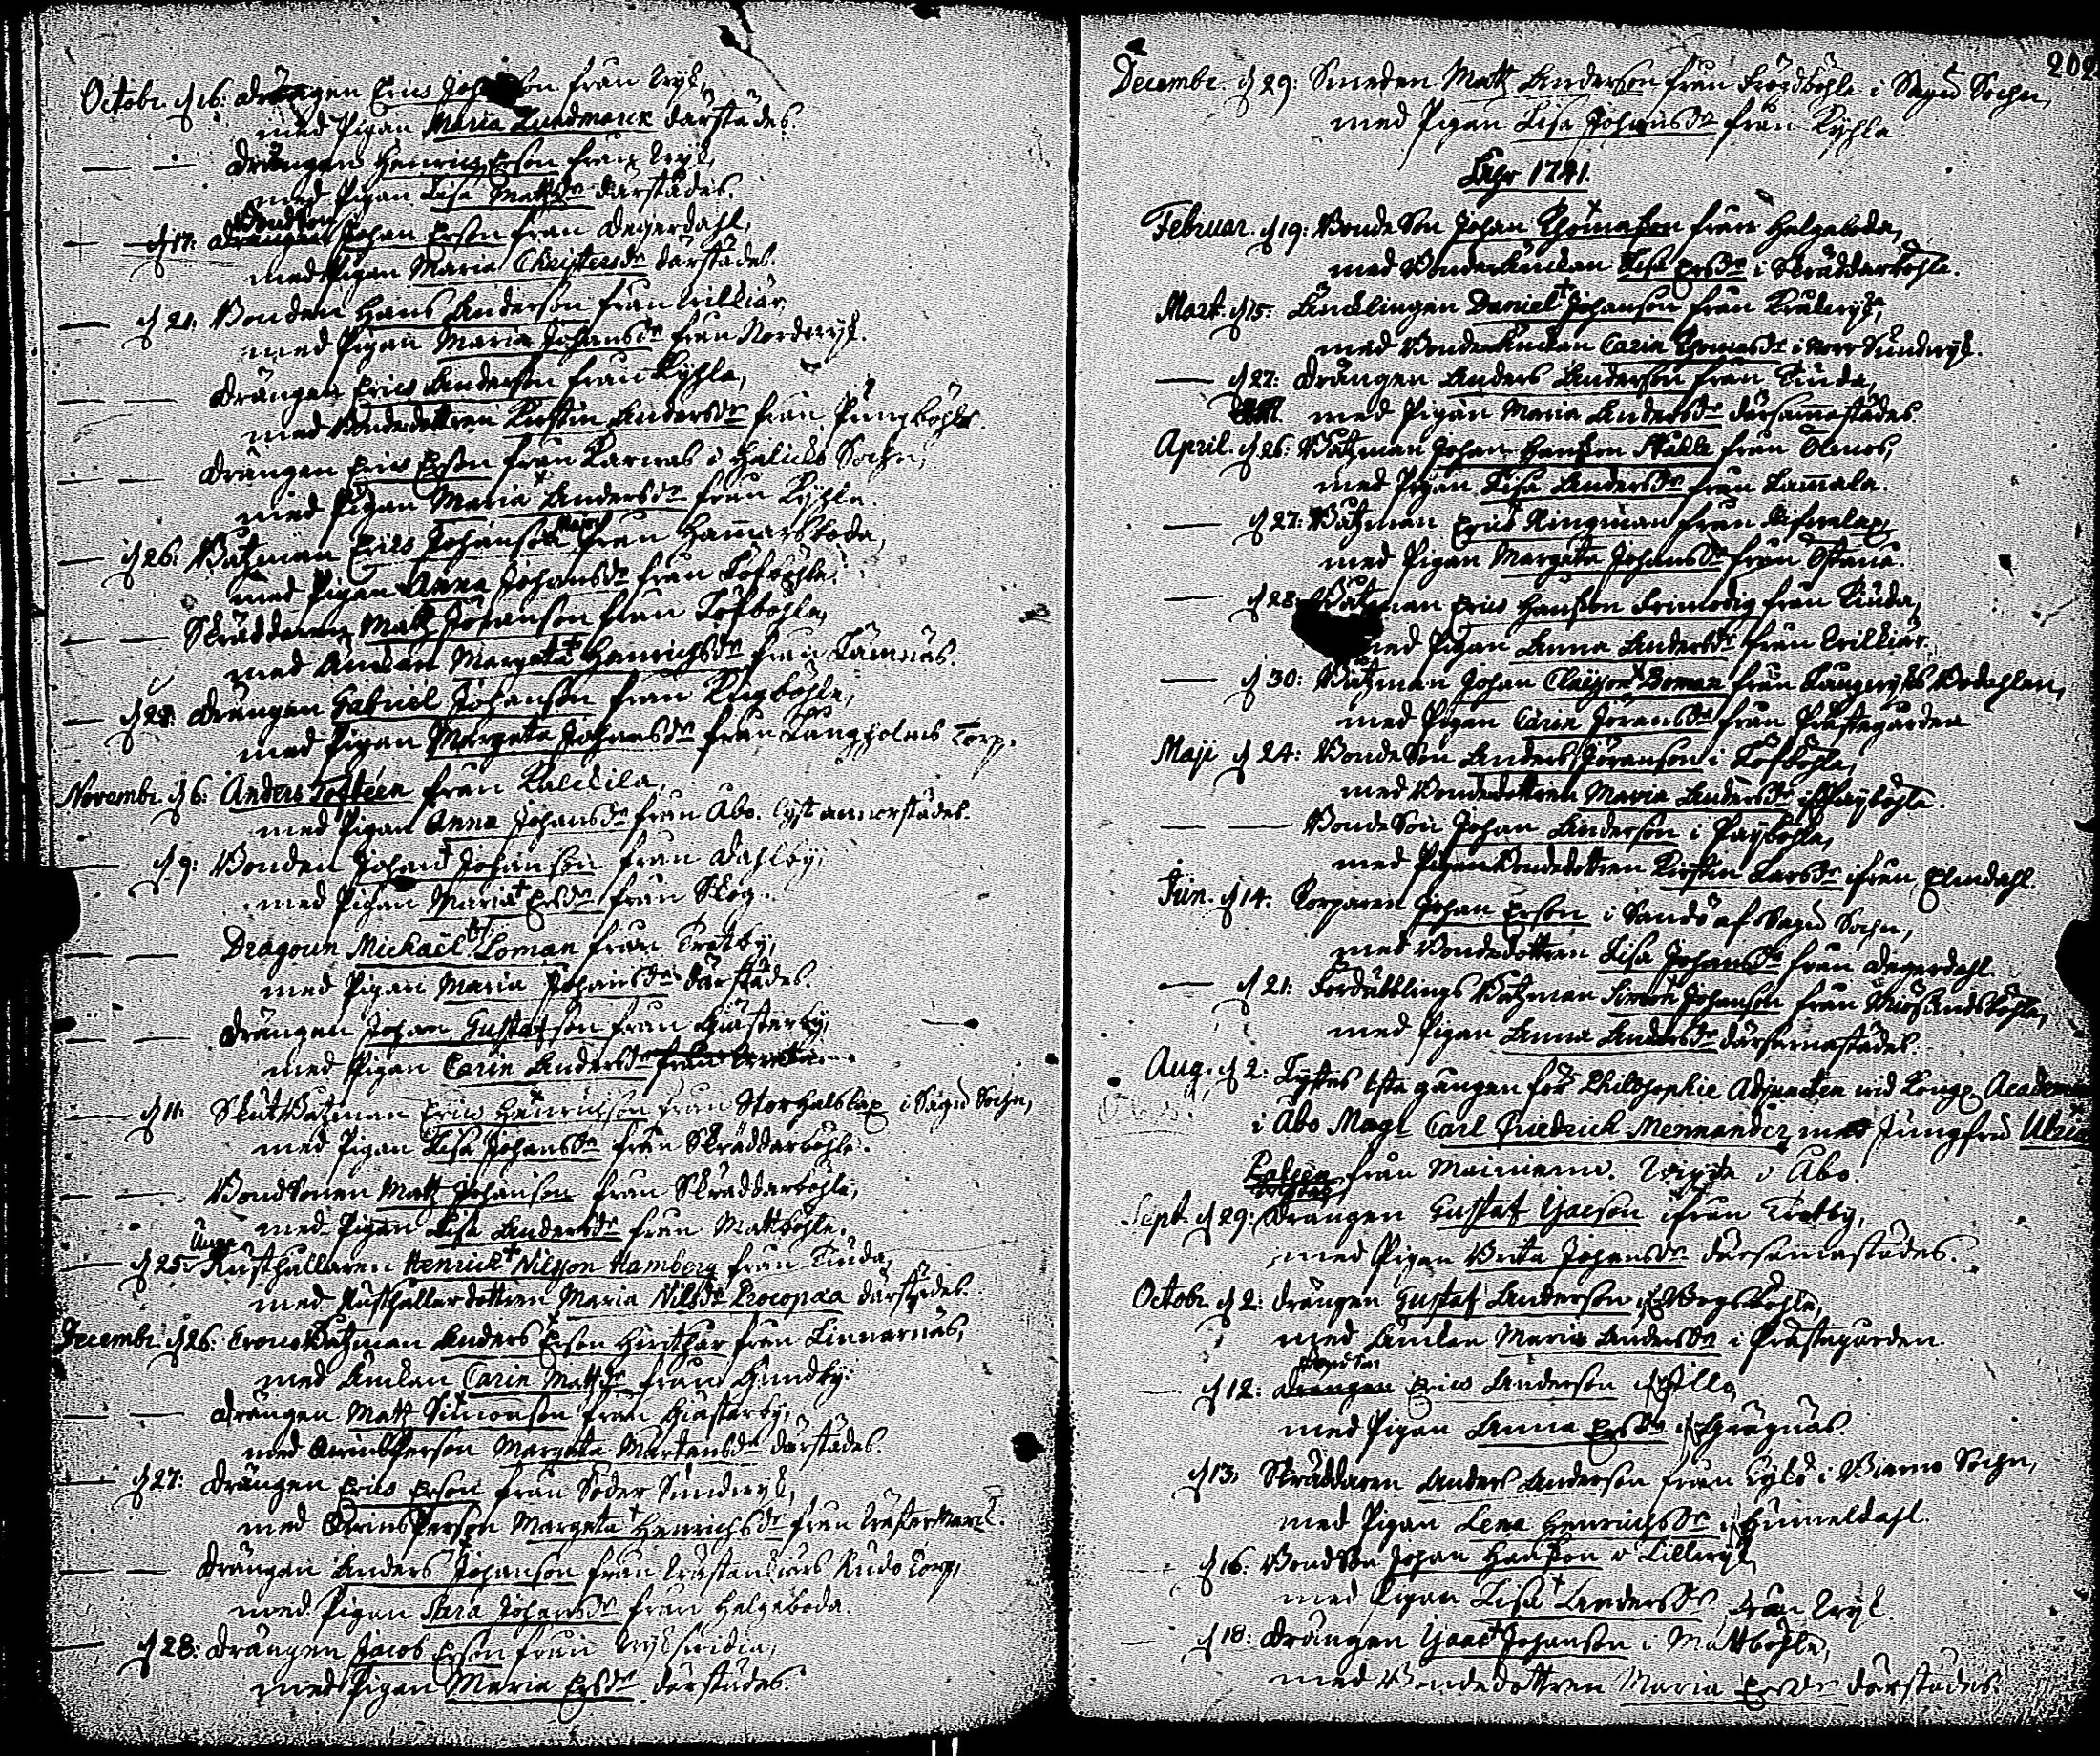 Octobr. d 16: Drängen Erics Johanson från Wijk,
med Pigan Maria Lundmarck därstädes.
— — Drängen Henrics Erson från Wijk,
med Pigan Lisa Mattsdr därstädes.
BondSon
— d 17: Drängen Johan Erson från Degerdahl,
med Pigan Maria Christersdr därstädes.
— d 21: Bonden Hans Anderson från
med Pigan Maria Johansdr från Norrwijk.
— — Drängen Erics Anderson från Kyhla,
med Bondedottren Kirstin Andersdr från Pungböhle.
— — Drängen Erics Erson från Karwas i Haliko Sochn,
med Pigan Maria Andersdr från Kyhla.
— d 26: Båtzman Erics Johanson Major från Hammarsboda,
med Pigan Anna Johansdr från Löfböhle.
— — Skräddaren Matz Johanson från Löfböhle,
med Änckan Margeta Henrichsdr från Lämnäs.
— d 28: Drängen Gabriel Johanson från
med Pigan Margeta Johansdr från Långholms Torp.
Novembr. d 6: Anders Tolteen från Kalckila,
med Pigan Anna Johansdr från Åbo. Lyst annorstädes.
— d 9: Bonden Johan Johanson från Dahlby,
med Pigan Maria Ersdr från Skog.
— — Dragoun Michaël Loman från Tretby,
med Pigan Maria Johansdr därstädes.
— — Drängen Johan Gustafson från Giästerby,
med Pigan Carin Andersdr från
— d 11: SkutBåtzman Erics Hänricsson från Storhalslax i Sagu Sochn,
med Pigan Lisa Johansdr från Skräddarböhle.
— — BondSonen Matz Johanson från Skräddarböhle,
med Pigan Lisa Andersdr från Mattböhle.
Unge
— d 25: Rusthållaren Henrich Nilsson Hamberg från Tiuda,
med Rusthållerdottren Maria Nilsdr Procopæa därstädes.
Decembr. d 26: CronoBåtzman Anders Erson från Finnarnäs,
med Änckan Carin Mattsdr från Gundby.
— — Drängen Matz Simonson från Giästerby,
med Qwinsperson Margeta Mårtensdr därstädes.
— d 27: Drängen Erics Erson från Söder Sundwijk,
med Qwinsperson Margeta Henrichsdr från Wästermarck.
— — Drängen Anders Johanson från Torp,
med Pigan Sara Johansdr från Helgeboda.
— d 28: Drängen Jacob Erson från
med Pigan Maria Ersdr därstädes.
202
Decembr. d 29: Smeden Matz Anderson från i Sagu Sochn,
med Pigan Lisa Johansdr från Kyhla.
Åhr 1741.
Februar. d 19: BondeSon Johan Thomasson från Helgeboda,
med BondeÄnckan Lisa Ersdr i Skräddarböhle.
Mart. d 15: Äncklingen Daniel Johanson från
med BondeÄnckan Carin Thomasdr i Norr Sundwijk.
— d 22: Drängen Anders Anderson från Tiuda,
med Pigan Maria Andersdr därsammastädes.
April. d 26: Båtzman Johan Hansson Stadde från
med Pigan Lisa Andersdr från Lammala.
— d 27: Båtzman Erics Ringman från
med Pigan Margeta Johansdr från Östanå.
— d 28: Båtzman Erics Hansson Frimodig från Tiuda,
med Pigan Anna Andersdr från
— d 30: Båtzman Johan Claësson Boman från
med Pigan Carin Jöransdr från Prästegården
Maji d 24: BondeSon Anders Jöranson i Löfböhle,
med Bondedottren Maria Andersdr i Påyböhle.
— — BondeSon Johan Anderson i Påyböhle,
med Pigan Bondedottren Kirstin Larsdr ifrån Elmdahl.
Jun. d 14: Torparen Johan Erson i Sandö af Sagu Sochn,
med Bondedottren Lisa Johansdr från Degerdahl.
— d 21: Fördubblings Båtzman Simon Johanson från
med Pigan Anna Andersdr därsammastädes.
Aug. d 2: Lystes 1sta gången för Philosophie Adjuncten wid Kongl. Academien
i Åbo Mag. Carl Friedrich Mennander, med Jungfru
Paleen från Mainiemi. Wigde i Åbo.
Sept. d 29: Drängen Gustaf Isacson ifrån Tretby,
med Pigan Brita Johansdr därsammastädes.
Octobr. d 2: Drängen Gustaf Anderson
med Änckan Maria Andersdr i Prästegården.
BondSon
d 12: Drängen Erics Anderson
med Pigan Anna Ersdr
d 13: Skräddaren Anders Anderson från i Bierno Sochn,
med Pigan Lena Henrichsdr i Himmeldahl.
d 16: BondSon Johan Hansson i Lillwijk,
med Pigan Lisa Andersdr från Wijk.
d 18: Drängen Isaac Johanson i Mattböhle,
med Bondedottren Maria Ersdr därstädes.